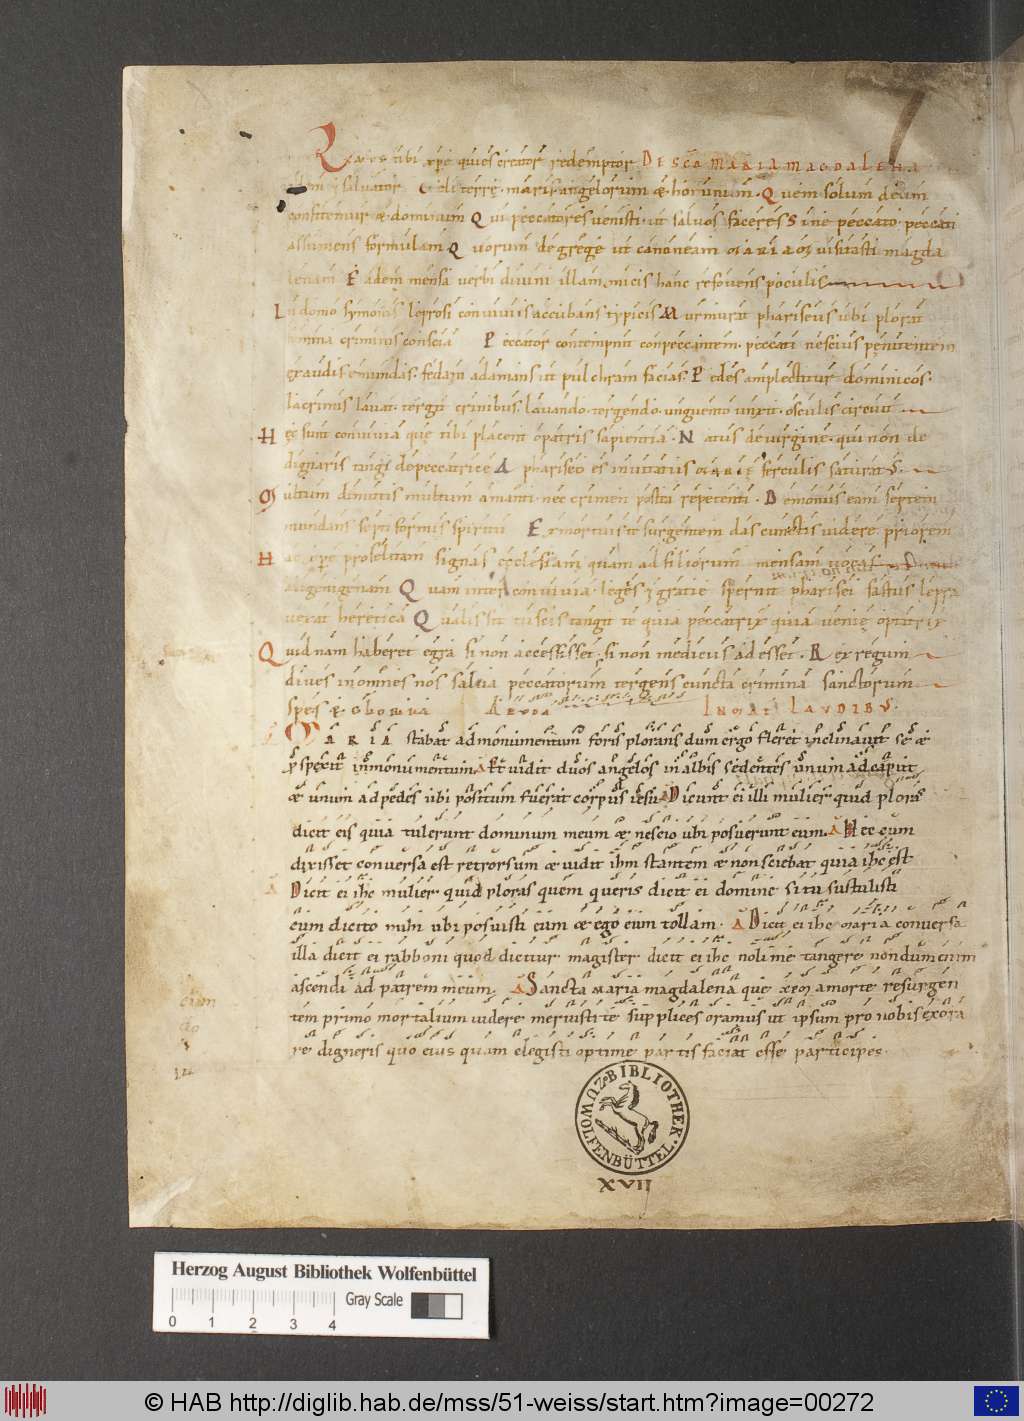 Laus tibi xpe qui es creator redemptor DE SCA MARIA MAGDALENA
idem & salvator Celi terre maris angelorum & hominum. Quem solum deum
confitemur & dominum Qui peccatores venisti ut salvos faceres Sine peccato peccati
assumens formulam Quorum de grege ut cananeam MARIAM visitasti magda
lenam Eadem mensa verbi divini illam micis hanc refovens poculis
In domo symonis leprosi conviviis accubans typicis Murmurat phariseus ubi plorat
femina criminis conscia Peccator contempnit conpeccantem peccati nescius penitentem
exaudis emundas fedam adamas ut pulchram facias Pedes amplectitur dominicos
lacrimis lavat tergit crinibus lavando tergendo unguento unxit osculis circuit
Hec sunt convivia que tibi placent o patris sapientia Natus de virgine qui non de
dignaris tangi de peccatrice A phariseo es invitatus MARIE ferculis saturatus
Multum dimittis multum amanti nec crimen postea repetenti Demoniis eam septem
mundans septiformi spiritu Ex mortuis te surgentem das cunctis videre priorem
Hac xpe proselitam signas ecclesiam quam ad filiorum mensam vocas
alienigenam Quam inter convivia legis & gratie spernit pharisei fastus lepra
vexat heretica Qualis sit tu scis tangit te quia peccatrix quia venie optatrix
Quidnam haberet egra si non accessisset si non medicus adesset Rex regum
dives in omnes nos salva peccatorum tergens cuncta crimina sanctorum
spes & gloria IN MAT LAUDIBUS
MARIA stabat ad monumentum foris plorans dum ergo fleret inclinavit se &
prospexit in monumentum A Et vidit duos angelos in albis sedentes unum ad caput
& unum ad pedes ubi positum fuerat corpus iesu A Dicunt ei illi mulier quid ploras
dicit eis quia tulerunt dominum meum & nescio ubi posuerunt eum. A Hec cum
dixisset conversa est retrorsum & vidit ihm stantem & non sciebat quia ihc est
A Dicit ei ihc mulier quid ploras quem queris dicit ei domine si tu sustulisti
eum dicito mihi ubi posuisti eum & ego eum tollam. A Dicit ei ihc maria conversa
illa dicit ei rabboni quod dicitur magister dicit ei ihc noli me tangere nondum enim
ascendi ad patrem meum. A Sancta maria magdalena que xpm a morte resurgen
tem primo mortalium videre meruisti te supplices oramus ut ipsum pro nobis exora
re digneris quo eius quam elegisti optime partis faciat esse participes
BIBLIOTHEK WOLFENBÜTTEL
XVII
Herzog August Bibliothek Wolfenbüttel
Gray Scale
0 1 2 3 4
© HAB http://diglib.hab.de/mss/51-weiss/start.htm?image=00272